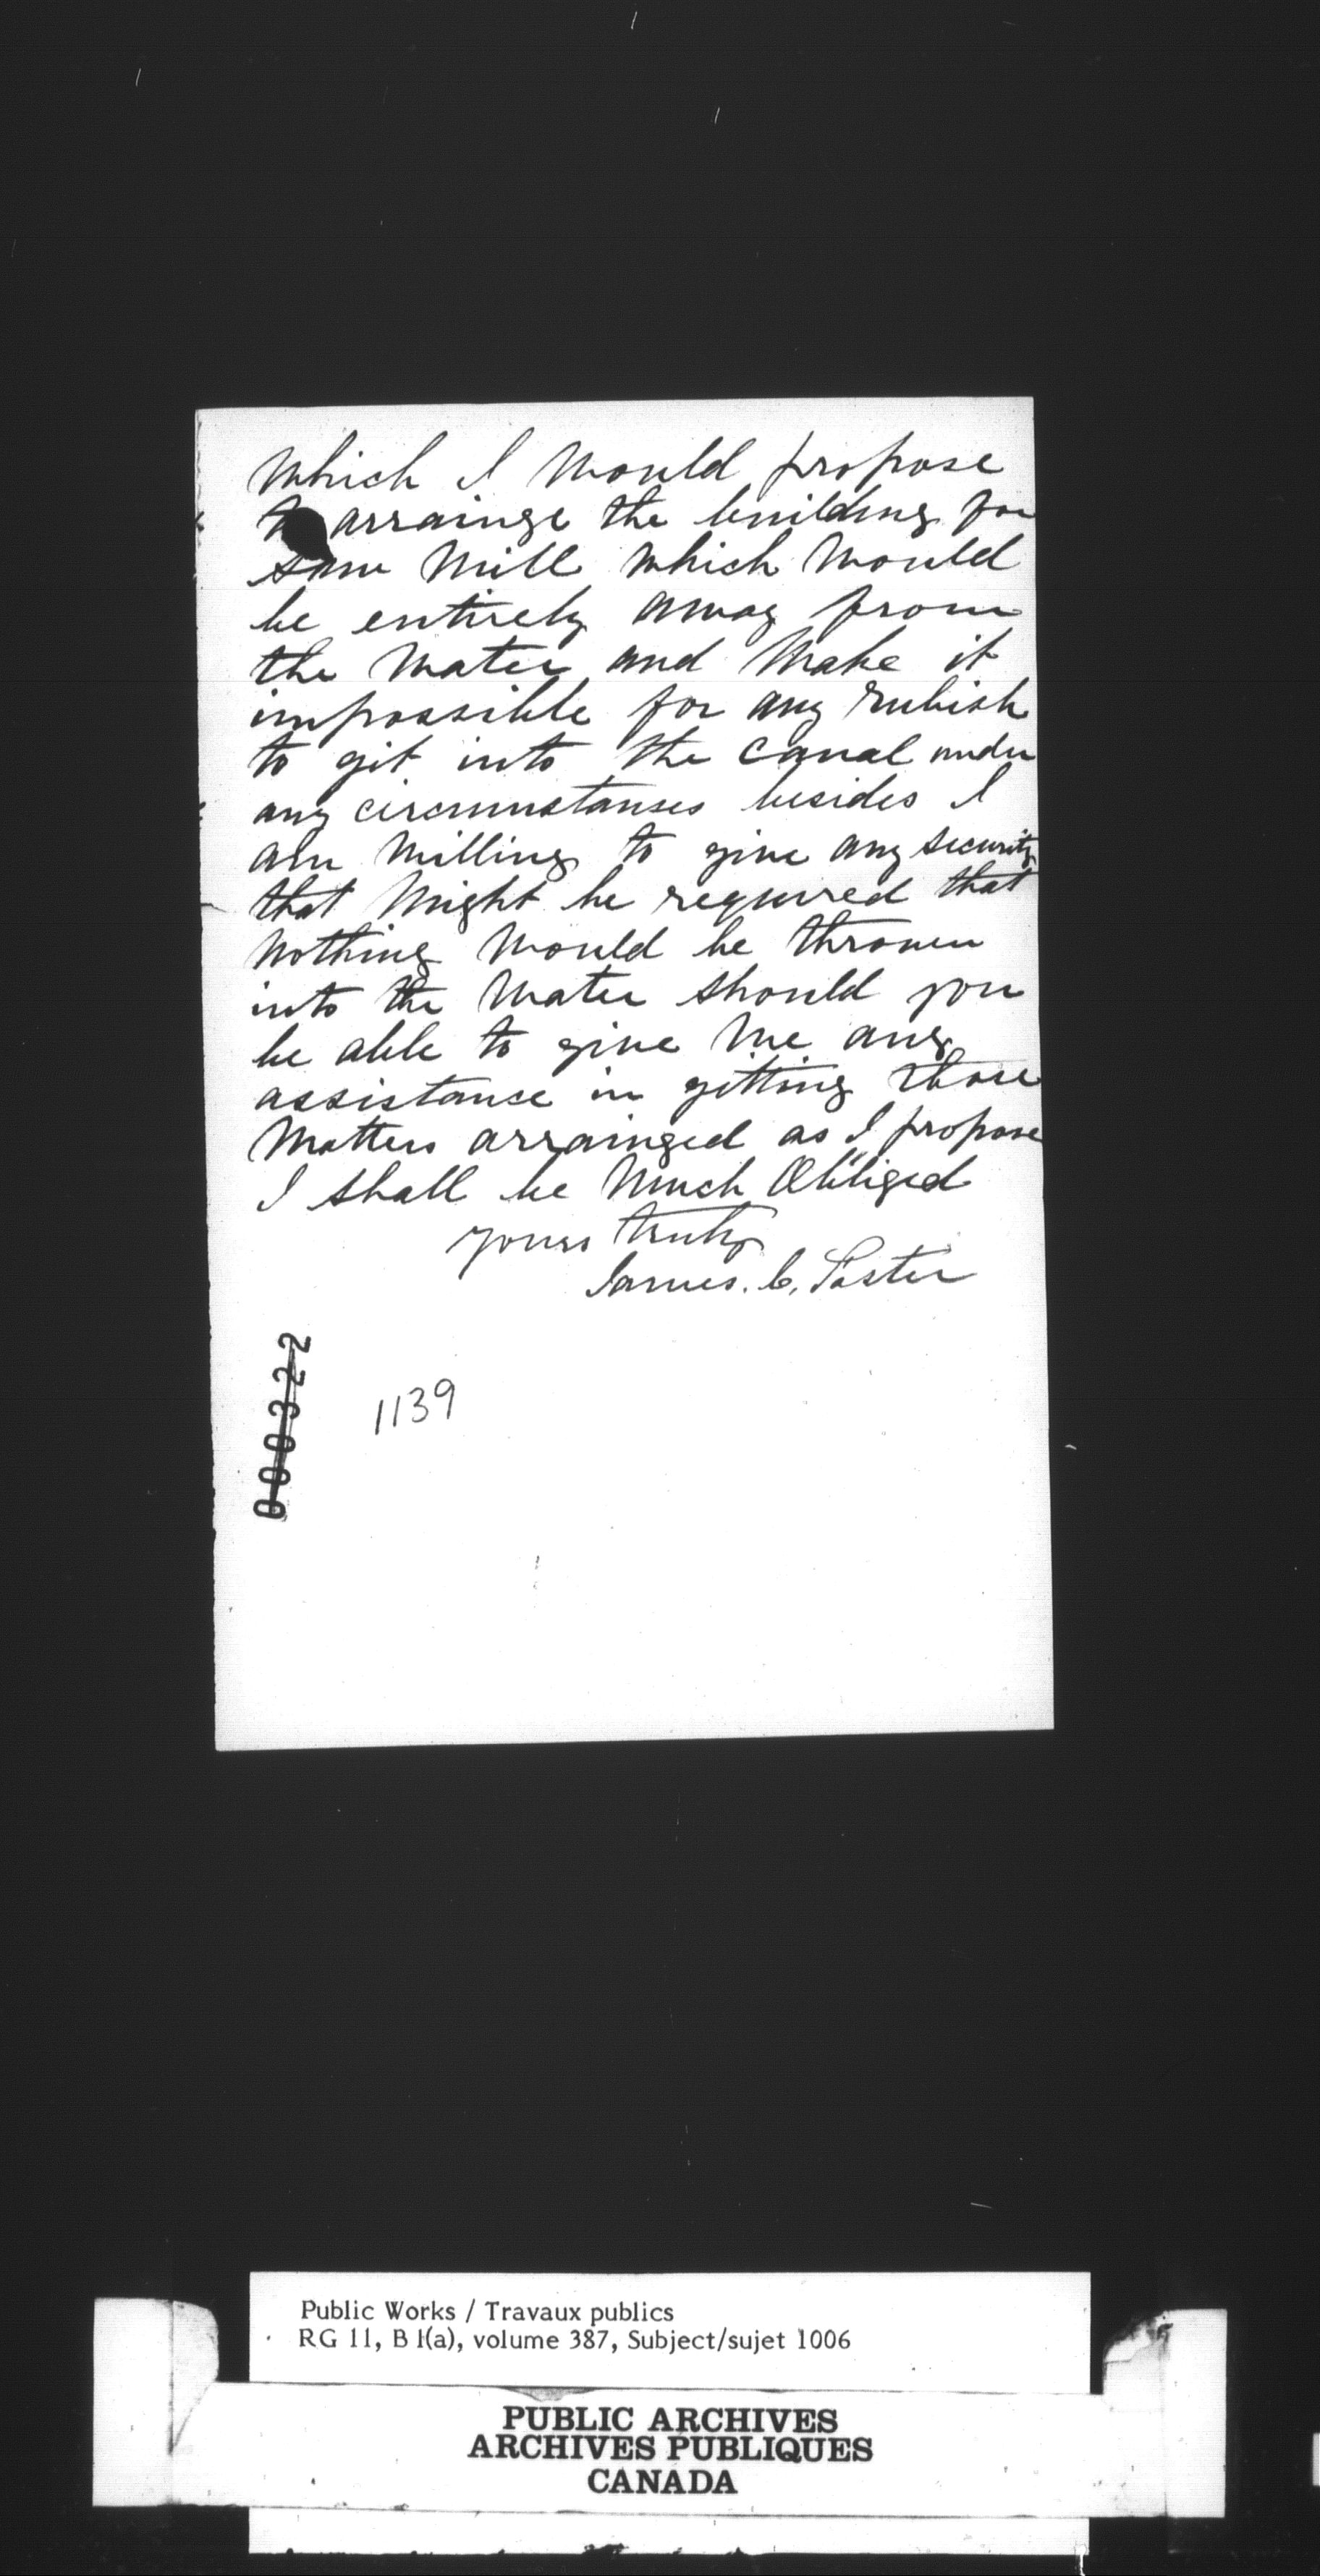 which I would propose
to arrainge the building for
saw mill which would
be entirely away from
the water and make it
impossible for any rubish
to git into the canal under
any circumstanses besides I
am willing to give any security
that might be required that
nothing would be thrown
into the water should you
be able to give me any
assistance in gitting those
matters arrainged as I propose
I shall be much Obliged
yours truly
James. C. Foster
000322
1139
Public Works / Travaux publics
RG 11, B 1(a), volume 387, Subject/sujet 1006
PUBLIC ARCHIVES
ARCHIVES PUBLIQUES
CANADA